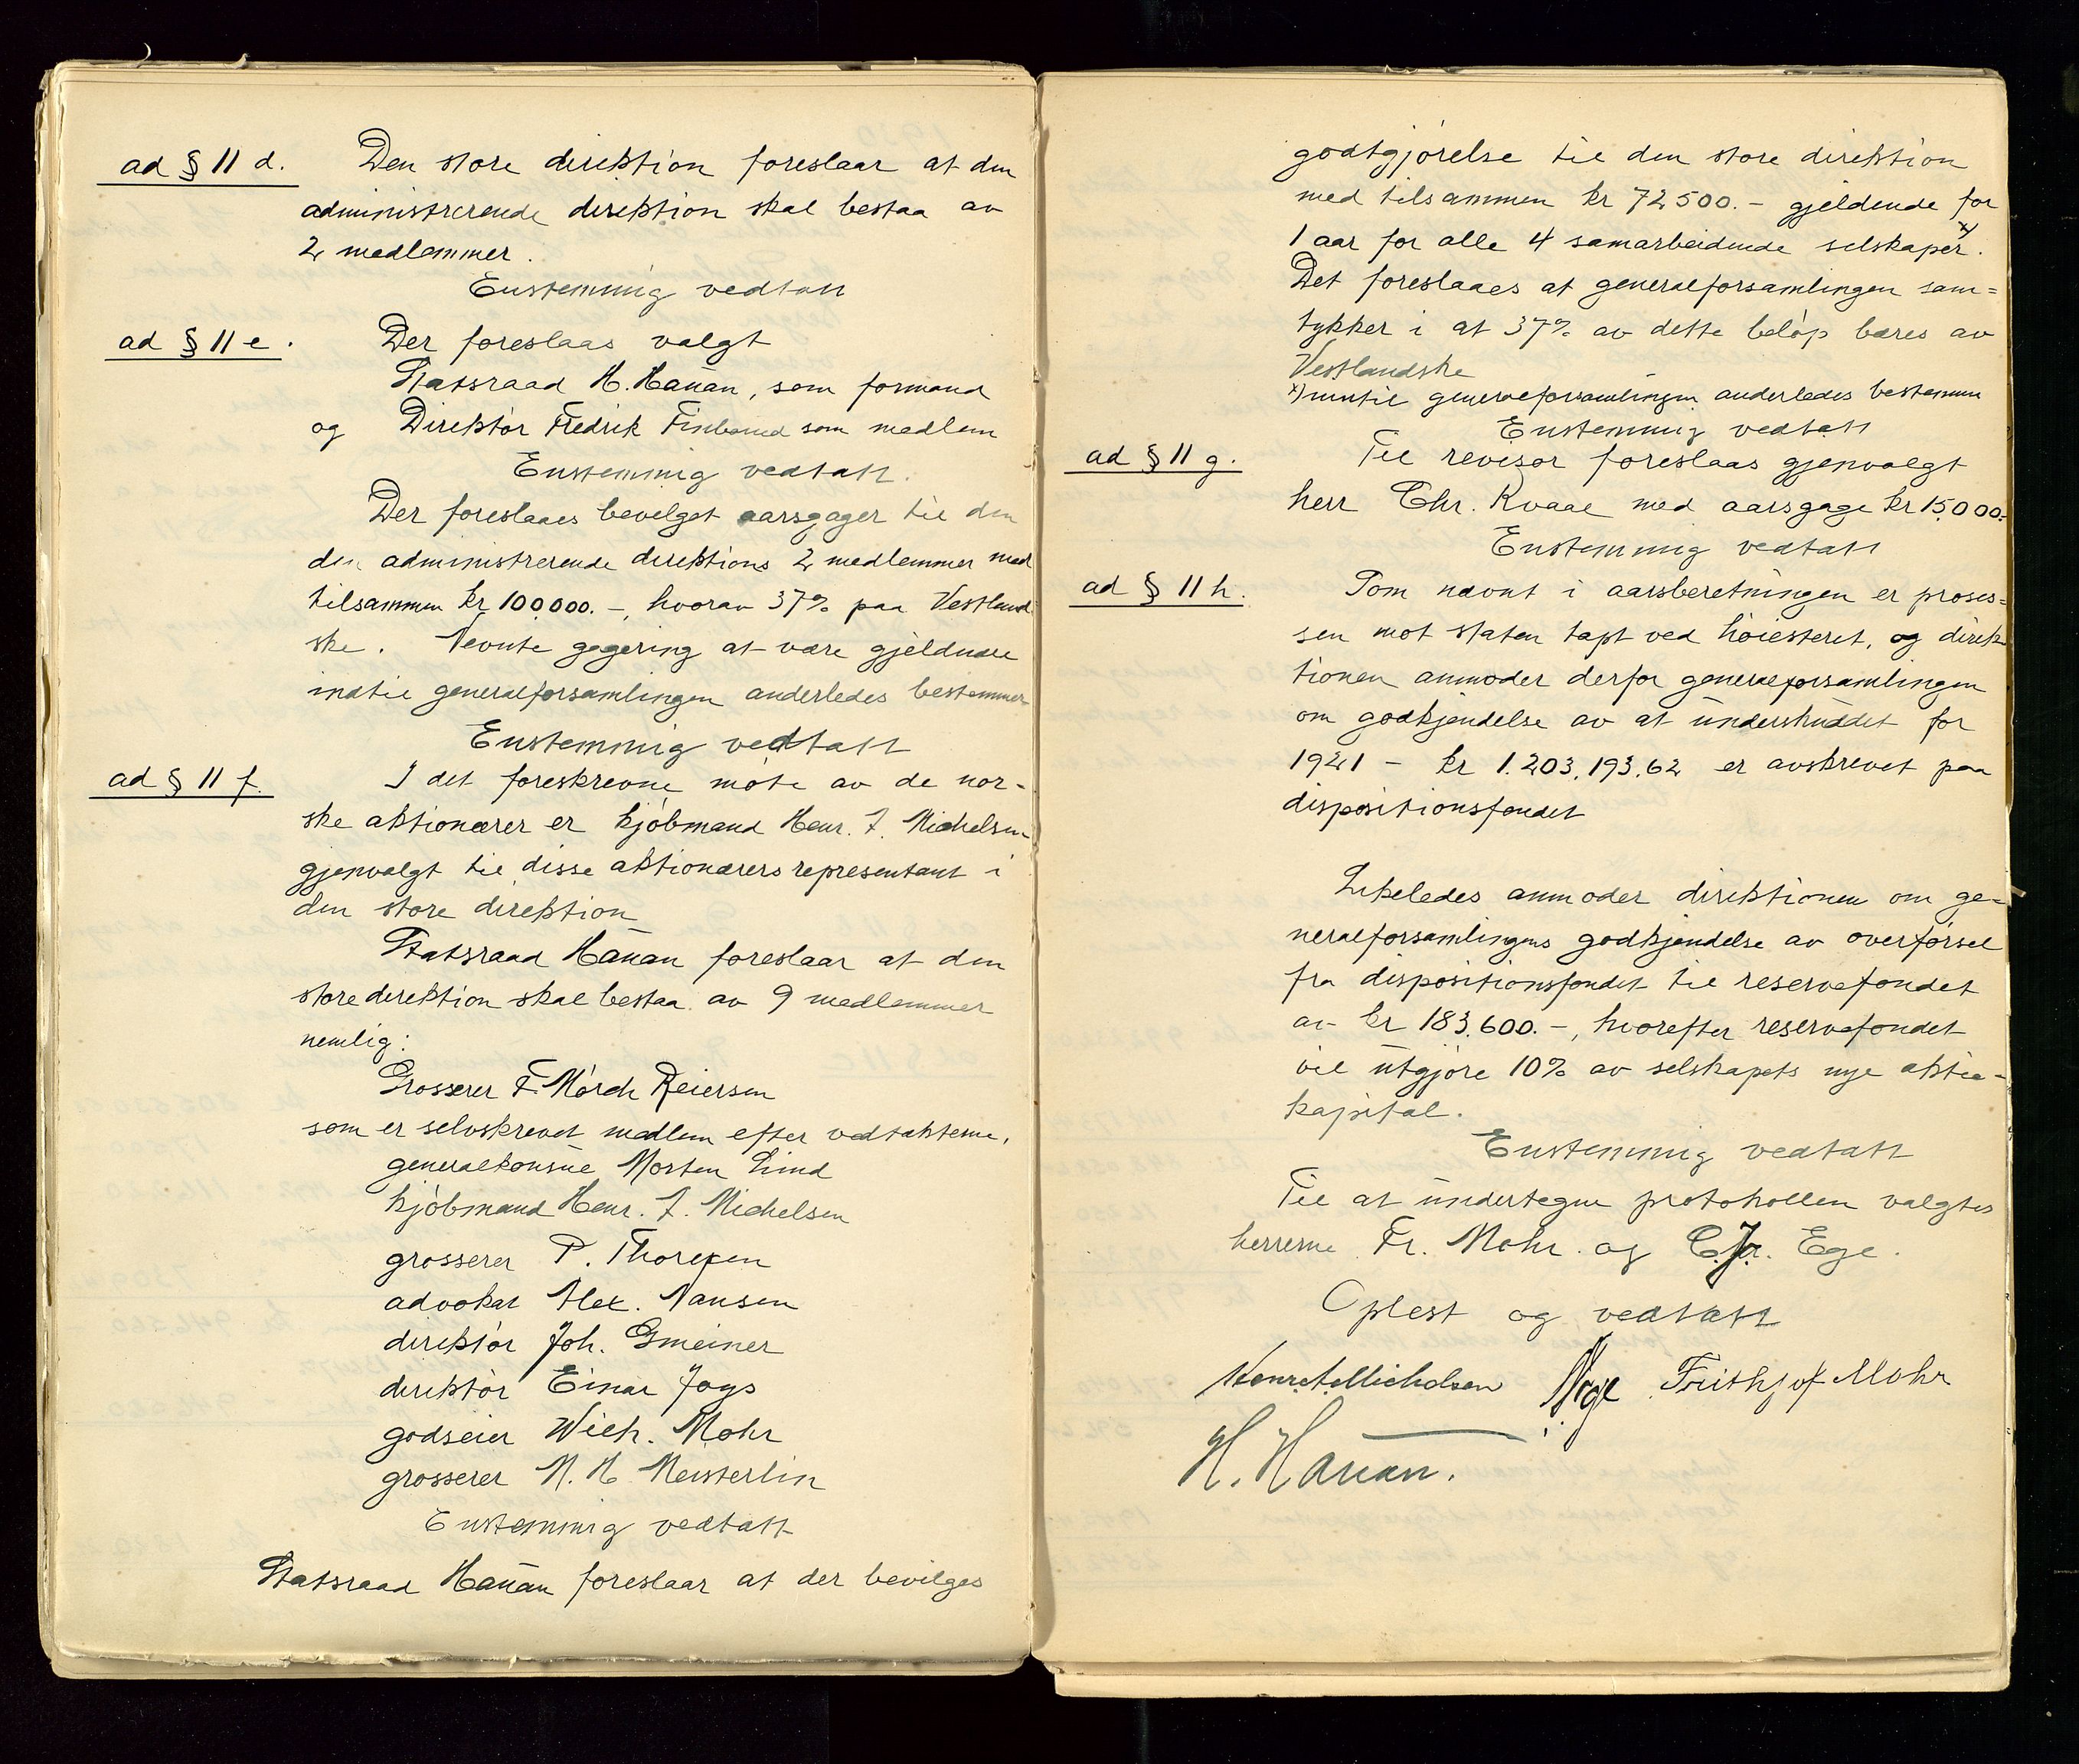 ad § 11 d. Den store direktion foreslaar at den
administrerende direktion skal bestaa av
2 medlemmer.
Enstemmig vedtatt
ad § 11 e. Der foreslaas valgt
Statsraad H. Hauan, som formand
og Direktør Fredrik som medlem
Enstemmig vedtatt.
Der foreslaaes bevilget aarsgager til den
den administrerende direktions 2 medlemmer med
tilsammen kr 100000.-, hvorav 37% paa Vestland
ske. Nevnte gagering at være gjeldende
indtil generalforsamlingen anderledes bestemmer
Enstemmig vedtatt
ad § 11 f. I det foreskrevne møte av de nor-
ske aktionærer er kjøbmand Henr. J. Michelsen
gjenvalgt til disse aktionærers representant i
den store direktion
Statsraad Hauan foreslaar at den
store direktion skal bestaa av 9 medlemmer
nemlig:
Grosserer F. Mørch Reiersen
som er selvskrevet medlem efter vedtakterne,
generalkonsul Morten Lind
kjøbmand Henr. J. Michelsen
grosserer P. Thoresen
advokat Alex. Nansen
direktør Joh. Gmeiner
direktør Einar Jogs
godseier Wilh. Mohr
grosserer N. H. Meisterlin
Enstemmig vedtatt
Statsraad Hauan foreslaar at der bevilges
godtgjørelse til den store direktion
med tilsammen kr 72500.- gjeldende for
1 aar for alle 4 samarbeidende selskaper x).
Det foreslaaes at generalforsamlingen sam=
tykker i at 37% av dette beløp bæres av
Vestlandske
x) inntil generalforsamlingen anderledes bestemm
Enstemmig vedtatt
ad § 11 g. Til revisor foreslaas gjenvalgt
herr Chr. Kvaal med aarsgage kr 15000.-
Enstemmig vedtatt
ad § 11 h. Som nævnt i aarsberetningen er proses=
sen mot staten tapt ved høiesteret, og direk-
tionen anmoder derfor generalforsamlingen
om godkjendelse av at underskuddet for
1921 - kr 1.203.193.62 er avskrevet paa
dispositionsfondet
Likeledes anmoder direktionen om ge=
neralforsamlingens godkjendelse av overførsel
fra dispositionsfondet til reservefondet
av kr 183.600.-, hvorefter reservefondet
vil utgjøre 10% av selskapets nye aktie-
kapital.
Enstemmig vedtatt
Til at undertegne protokollen valgtes
herrerne Fr. Mohr og C. Jr. Ege.
Oplest og vedtatt
Henr J Michelsen Ege Frithjof Mohr
H. Hauan.